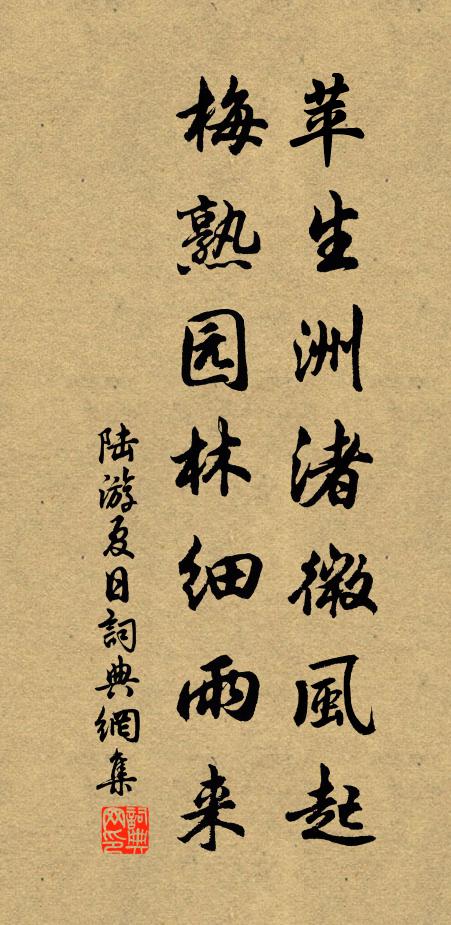 苹生洲渚微風起
梅熟园林细雨来
陆游夏日詞典網集
詞典网印